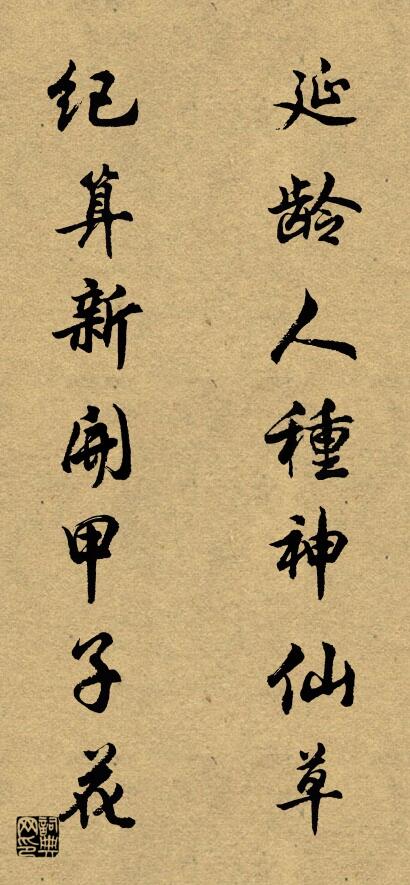 延龄人種神仙草
纪算新開甲子花
詞典网印